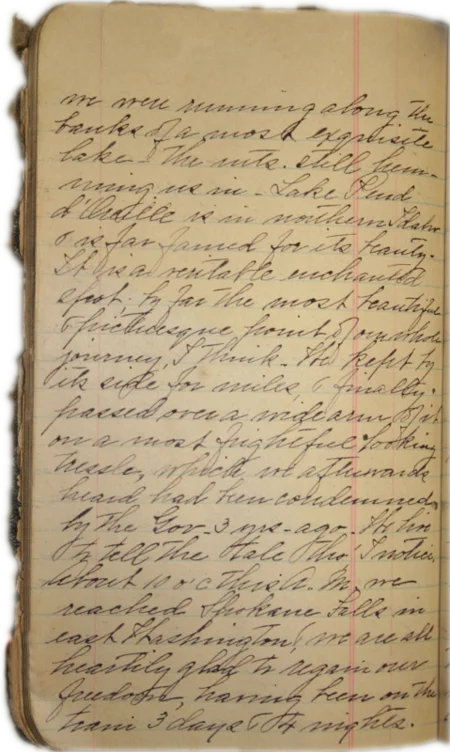 we were running along the
banks of a most exquisite
lake & the mts. still hem-
ming us in - Lake Pend
d'Oreille is in northern Idaho
& is far famed for its beauty.
It is a veritable enchanted
spot; by far the most beautiful
& picturesque point of our whole
journey, I think - We kept by
its side for miles & finally
passed over a wide arm of it
on a most frightful looking
tressle, which we afterwards
heard had been condemned
by the Gov - 3 yrs - ago - We live
to tell the tale tho' I notice.
About 10 o c this A. M. we
reached Spokane Falls in
east Washington, we are all
heartily glad to regain our
freedom, having been on the
train 3 days & 4 nights.